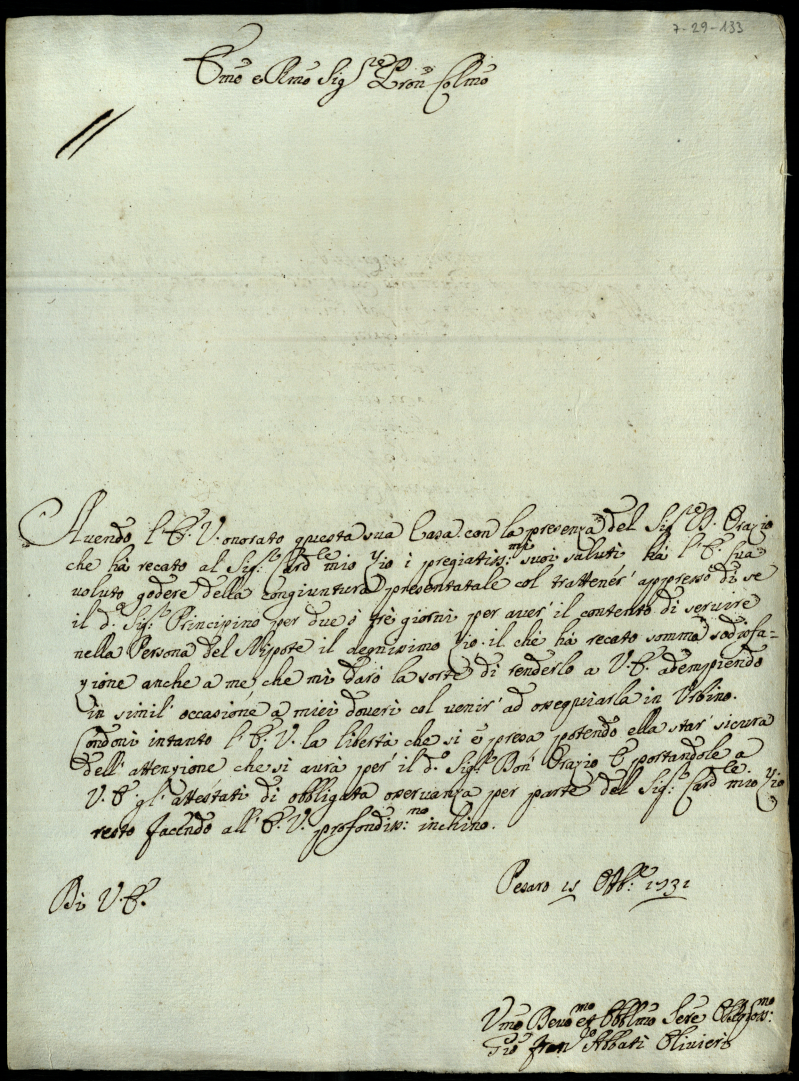 7-29-133
Emo e Rmo Sig.re Pron Colmo
Auendo l'E. V. onorato questa sua Casa con la presenza del Sig.re D. Orazio
che hà recato al Sig.r Card.le mio Zio i pregiatiss:mi suoi saluti hà l'E. Sua
voluto godere della congiuntura presentatale col trattener' appresso di se
il d.o Sig.r Principino per due ó trè giorni per auer' il contento di seruire
nella Persona del Nipote il degnissimo Zio. il che hà recato somma sodisfa-
zione anche a me, che mi darò la sorte di renderlo a V. E. adempiendo
in simil' occasione a miei doueri col uenir' ad ossequiarla in Urbino.
Condoni intanto l'E. V. la libertà che si è presa potendo ella star' sicura
dell'attenzione che si aurà per il d.o Sig.r Don Orazio E portandole a
V. E. gl'attestati di obbligata osseruanza per parte del Sig.r Card.le mio Zio
resto facendo all'E. V. profondiss:mo inchino.
Di V. E.
Pesaro 15 Ottb.e 1731
Vmo Deuo.mo et Obblmo Serre Ossequioss:mo
Gio Fran.co Abbati Oliuieri